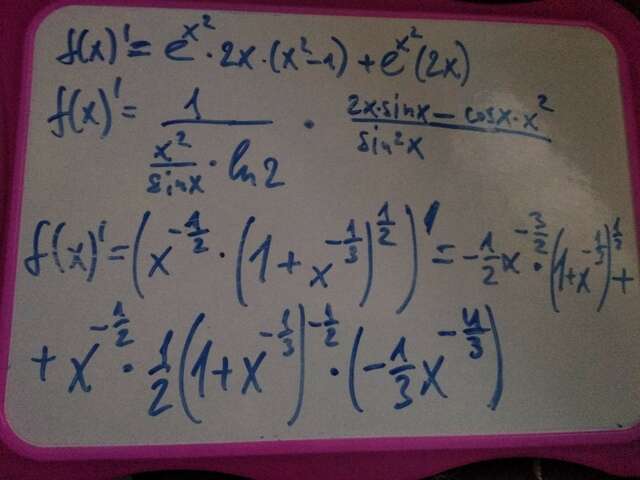 f(x)' = e^{x^2} · 2x · (x^2 - 1) + e^{x^2} (2x)
f(x)' = \frac{1}{\frac{x^2}{sinx} · ln2} · \frac{2x·sinx - cosx·x^2}{sin^2x}
f(x)' = (x^{-\frac{1}{2}} · (1 + x^{-\frac{1}{3}})^{\frac{1}{2}})' = -\frac{1}{2}x^{-\frac{3}{2}} · (1 + x^{-\frac{1}{3}})^{\frac{1}{2}} +
+ x^{-\frac{1}{2}} · \frac{1}{2}(1 + x^{-\frac{1}{3}})^{-\frac{1}{2}} · (-\frac{1}{3}x^{-\frac{4}{3}})